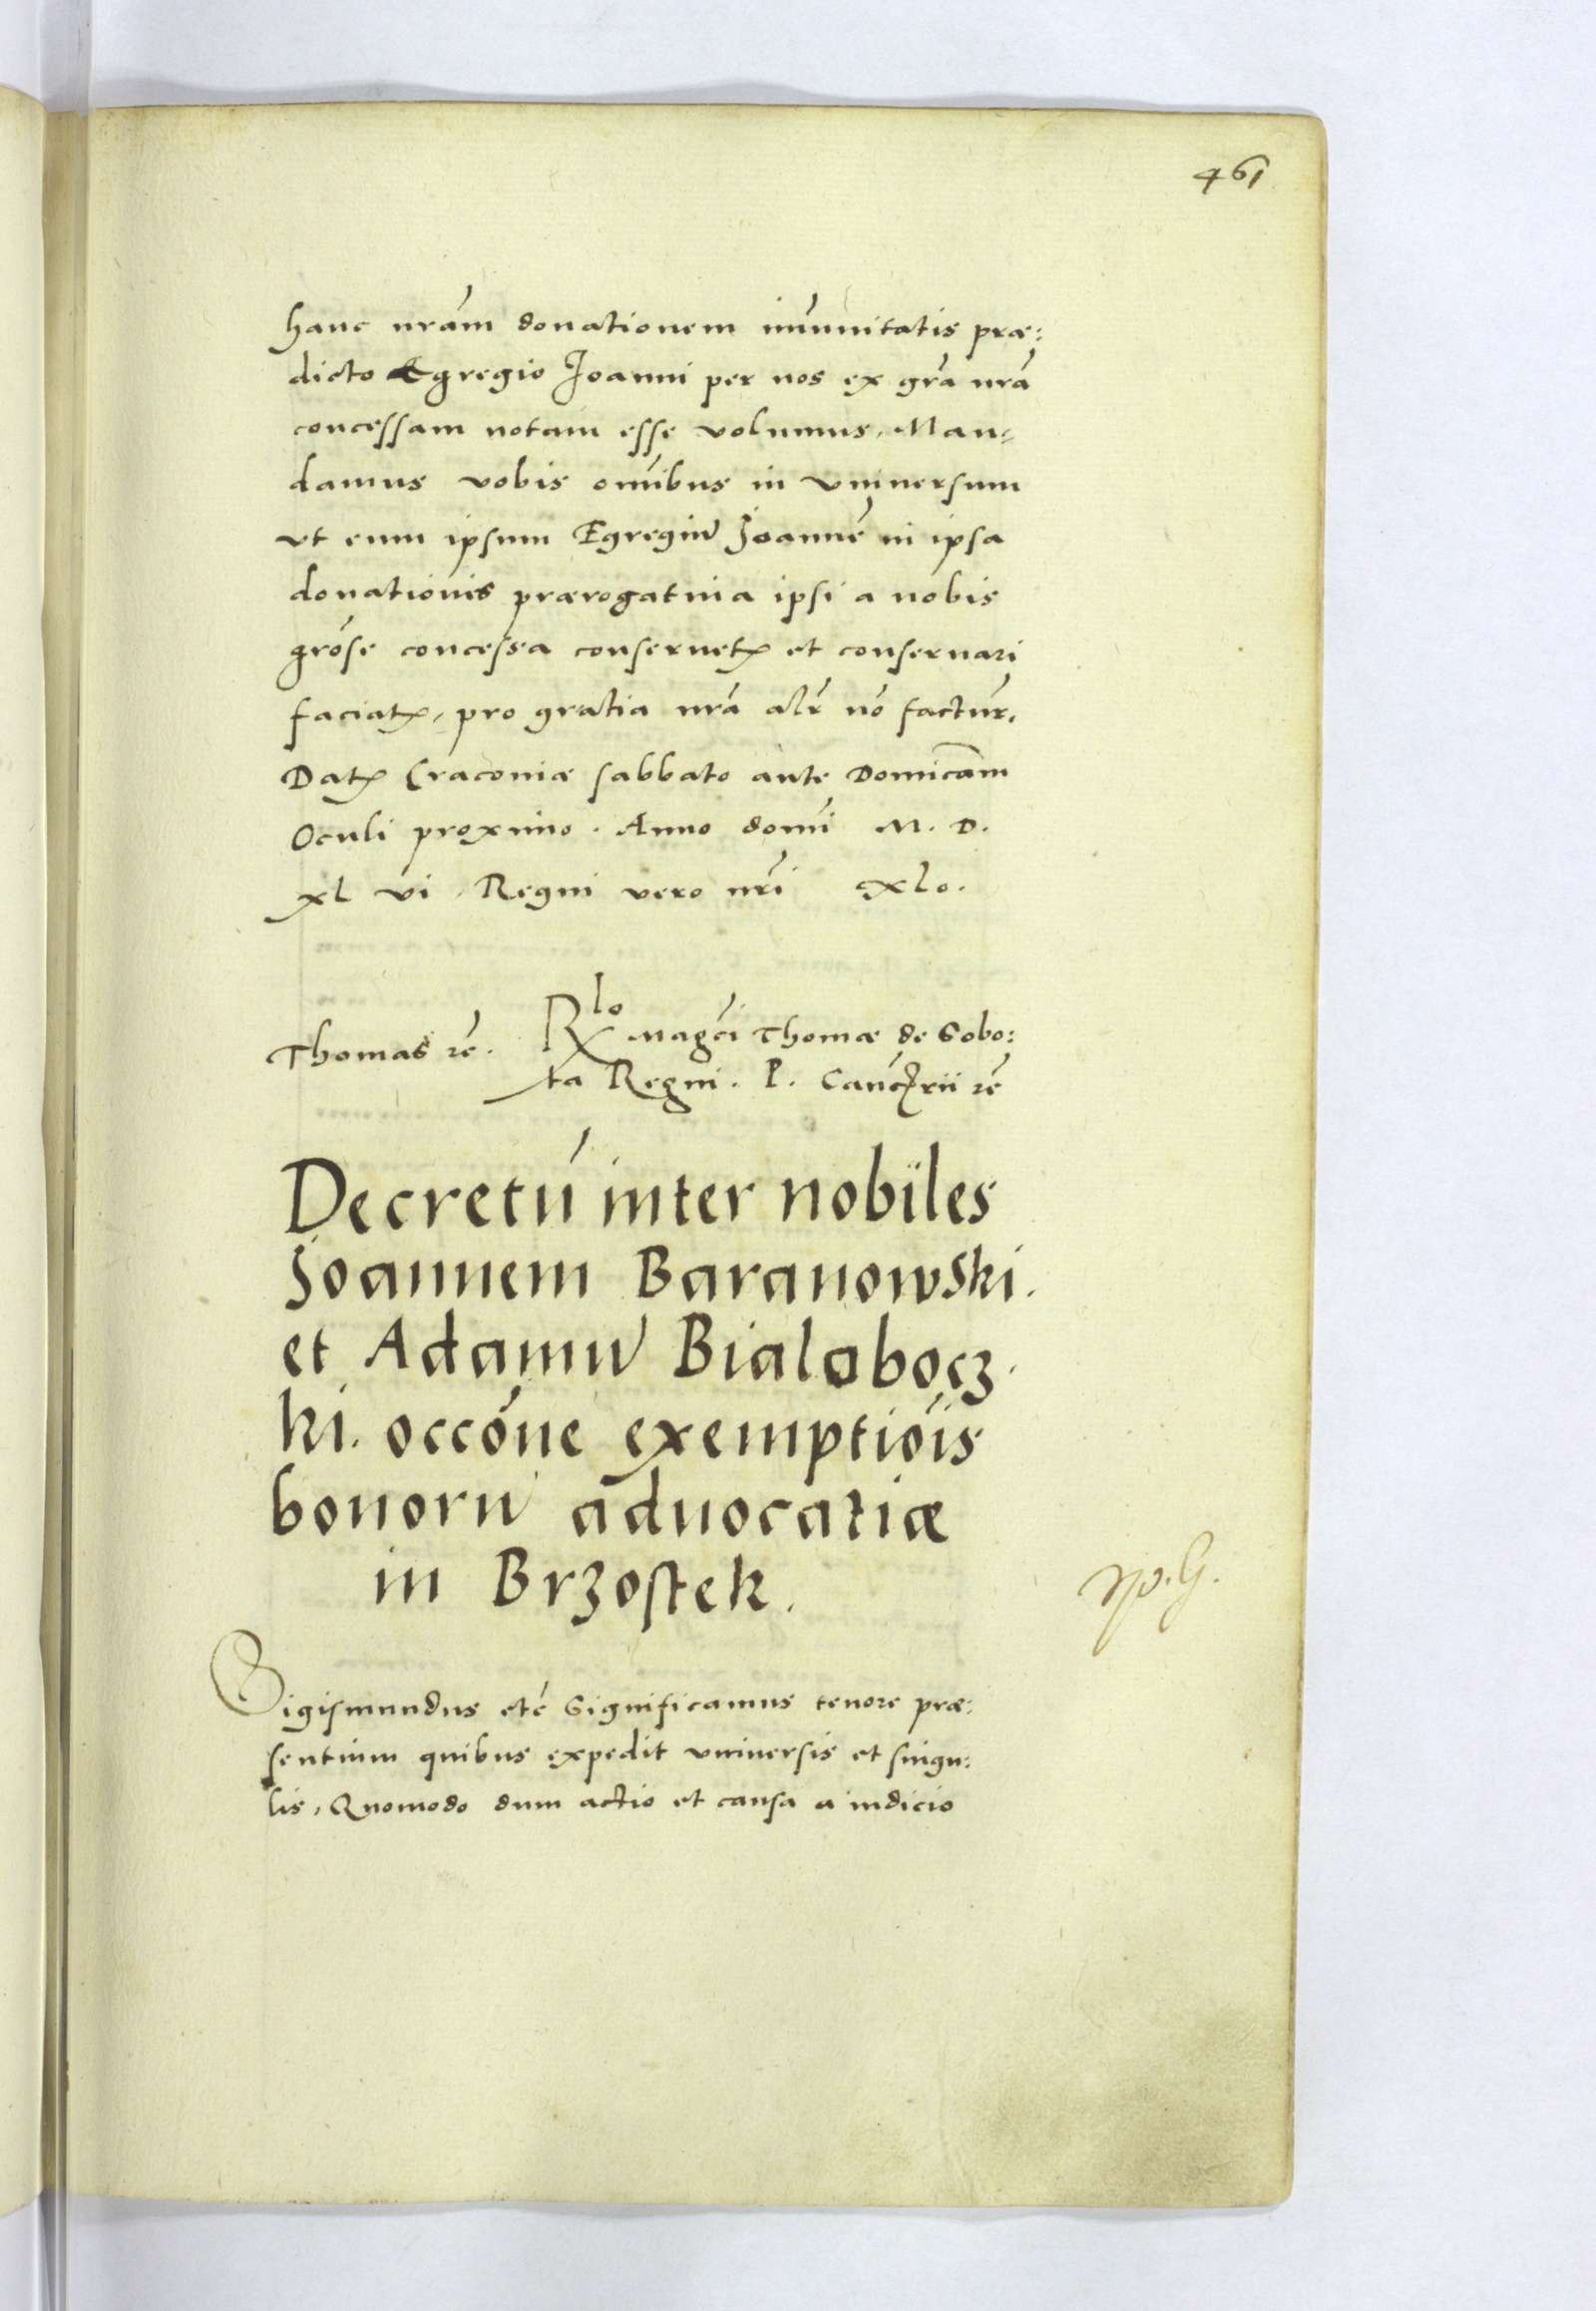 461
hanc nrãm donationem im̃unitatis præ:
dicto Egregio Joanni per nos ex grã nrã
concessam notam esse volumus. Man=
damus vobis om̃ibus in vniuersum
vt eum ipsum Egregiũ Joannẽ in ipsa
donationis prærogatiua ipsi a nobis
grõse concessa conseruetꝭ et conseruari
faciatꝭ, pro gratia nrã alr̃ nõ factur̃.
Datꝭ Cracouiæ sabbato ante Domicãm
Oculi proximo. Anno domĩ M. D.
xl vi. Regni vero nrĩ xlo.
Thomas rẽ.
Rlo Magcĩ Thomæ de Sobo:
ta Regni. P. Canc̃rii rẽ
Decretũ inter nobiles
Joannem Baranowski.
et Adamũ Bialobocz
ki. occõne exemptiõis
bonorũ aduocatiæ
in Brzostek.
Sigismundus etc̃ Significamus tenore præ:
sentium quibus expedit vniuersis et singu:
lis, Quomodo dum actio et causa a iudicio